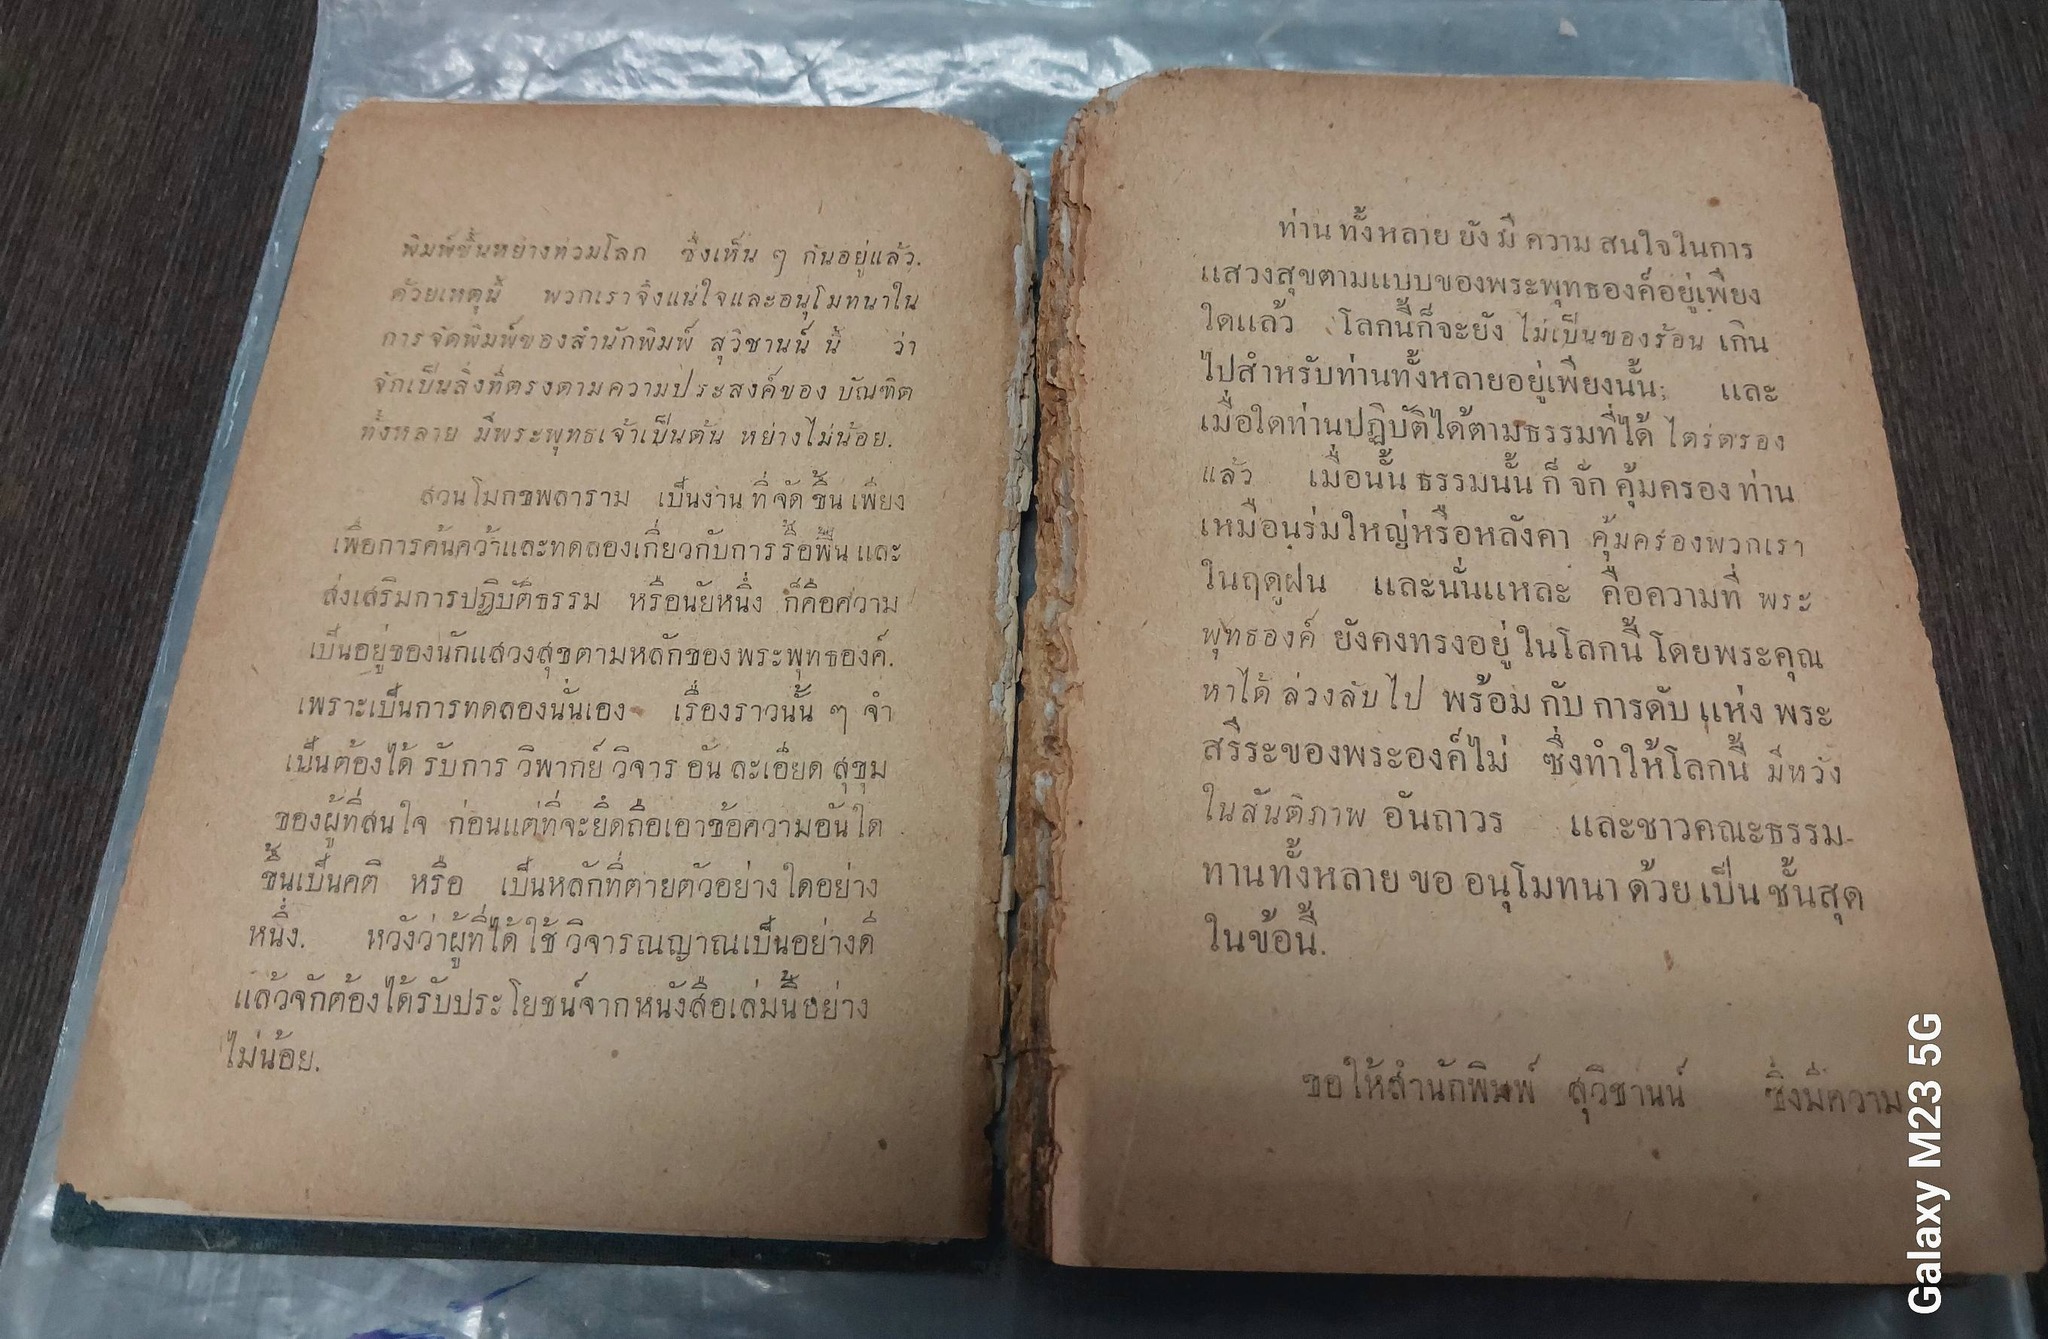 พิมพ์ขึ้นหย่างท่วมโลก ซึ่งเห็น ๆ กันอยู่แล้ว.
ด้วยเหตุนี้ พวกเราจึงแน่ใจและอนุโมทนาใน
การจัดพิมพ์ของสำนักพิมพ์ สุวิชานน์ นี้ ว่า
จักเป็นสิ่งที่ตรงตามความประสงค์ของ บัณฑิต
ทั้งหลาย มีพระพุทธเจ้าเป็นต้น หย่างไม่น้อย.
สวนโมกขพลาราม เป็นงาน ที่ จัด ขึ้น เพียง
เพื่อการค้นคว้าและทดลองเกี่ยวกับการรื้อฟื้น และ
ส่งเสริมการปฏิบัติธรรม หรือนัยหนึ่ง ก็คือความ
เป็นอยู่ของนักแสวงสุขตามหลักของพระพุทธองค์.
เพราะเป็นการทดลองนั่นเอง เรื่องราวนั้น ๆ จำ
เป็นต้องได้ รับการ วิพากย์ วิจาร อัน ละเอียด สุขุม
ของผู้ที่สนใจ ก่อนแต่ที่จะยึดถือเอาข้อความอันใด
ขึ้นเป็นคติ หรือ เป็นหลักที่ตายตัวอย่างใดอย่าง
หนึ่ง. หวังว่าผู้ที่ได้ ใช้ วิจารณญาณเป็นอย่างดี
แล้วจักต้องได้รับประโยชน์จากหนังสือเล่มนี้อย่าง
ไม่น้อย.
ท่าน ทั้งหลาย ยัง มี ความ สนใจในการ
แสวงสุขตามแบบของพระพุทธองค์อยู่เพียง
ใดแล้ว โลกนี้ก็จะยัง ไม่เป็นของร้อน เกิน
ไปสำหรับท่านทั้งหลายอยู่เพียงนั้น; และ
เมื่อใดท่านปฏิบัติได้ตามธรรมที่ได้ ไตร่ตรอง
แล้ว เมื่อนั้น ธรรมนั้น ก็ จัก คุ้มครอง ท่าน
เหมือนร่มใหญ่หรือหลังคา คุ้มครองพวกเรา
ในฤดูฝน และนั่นแหละ คือความที่ พระ
พุทธองค์ ยังคงทรงอยู่ ในโลกนี้ โดยพระคุณ
หาได้ ล่วงลับ ไป พร้อม กับ การดับ แห่ง พระ
สรีระของพระองค์ไม่ ซึ่งทำให้โลกนี้ มีหวัง
ในสันติภาพ อันถาวร และชาวคณะธรรม-
ทานทั้งหลาย ขอ อนุโมทนา ด้วย เป็น ชั้นสุด
ในข้อนี้.
ขอให้สำนักพิมพ์ สุวิชานน์ ซึ่งมีความ
Galaxy M23 5G